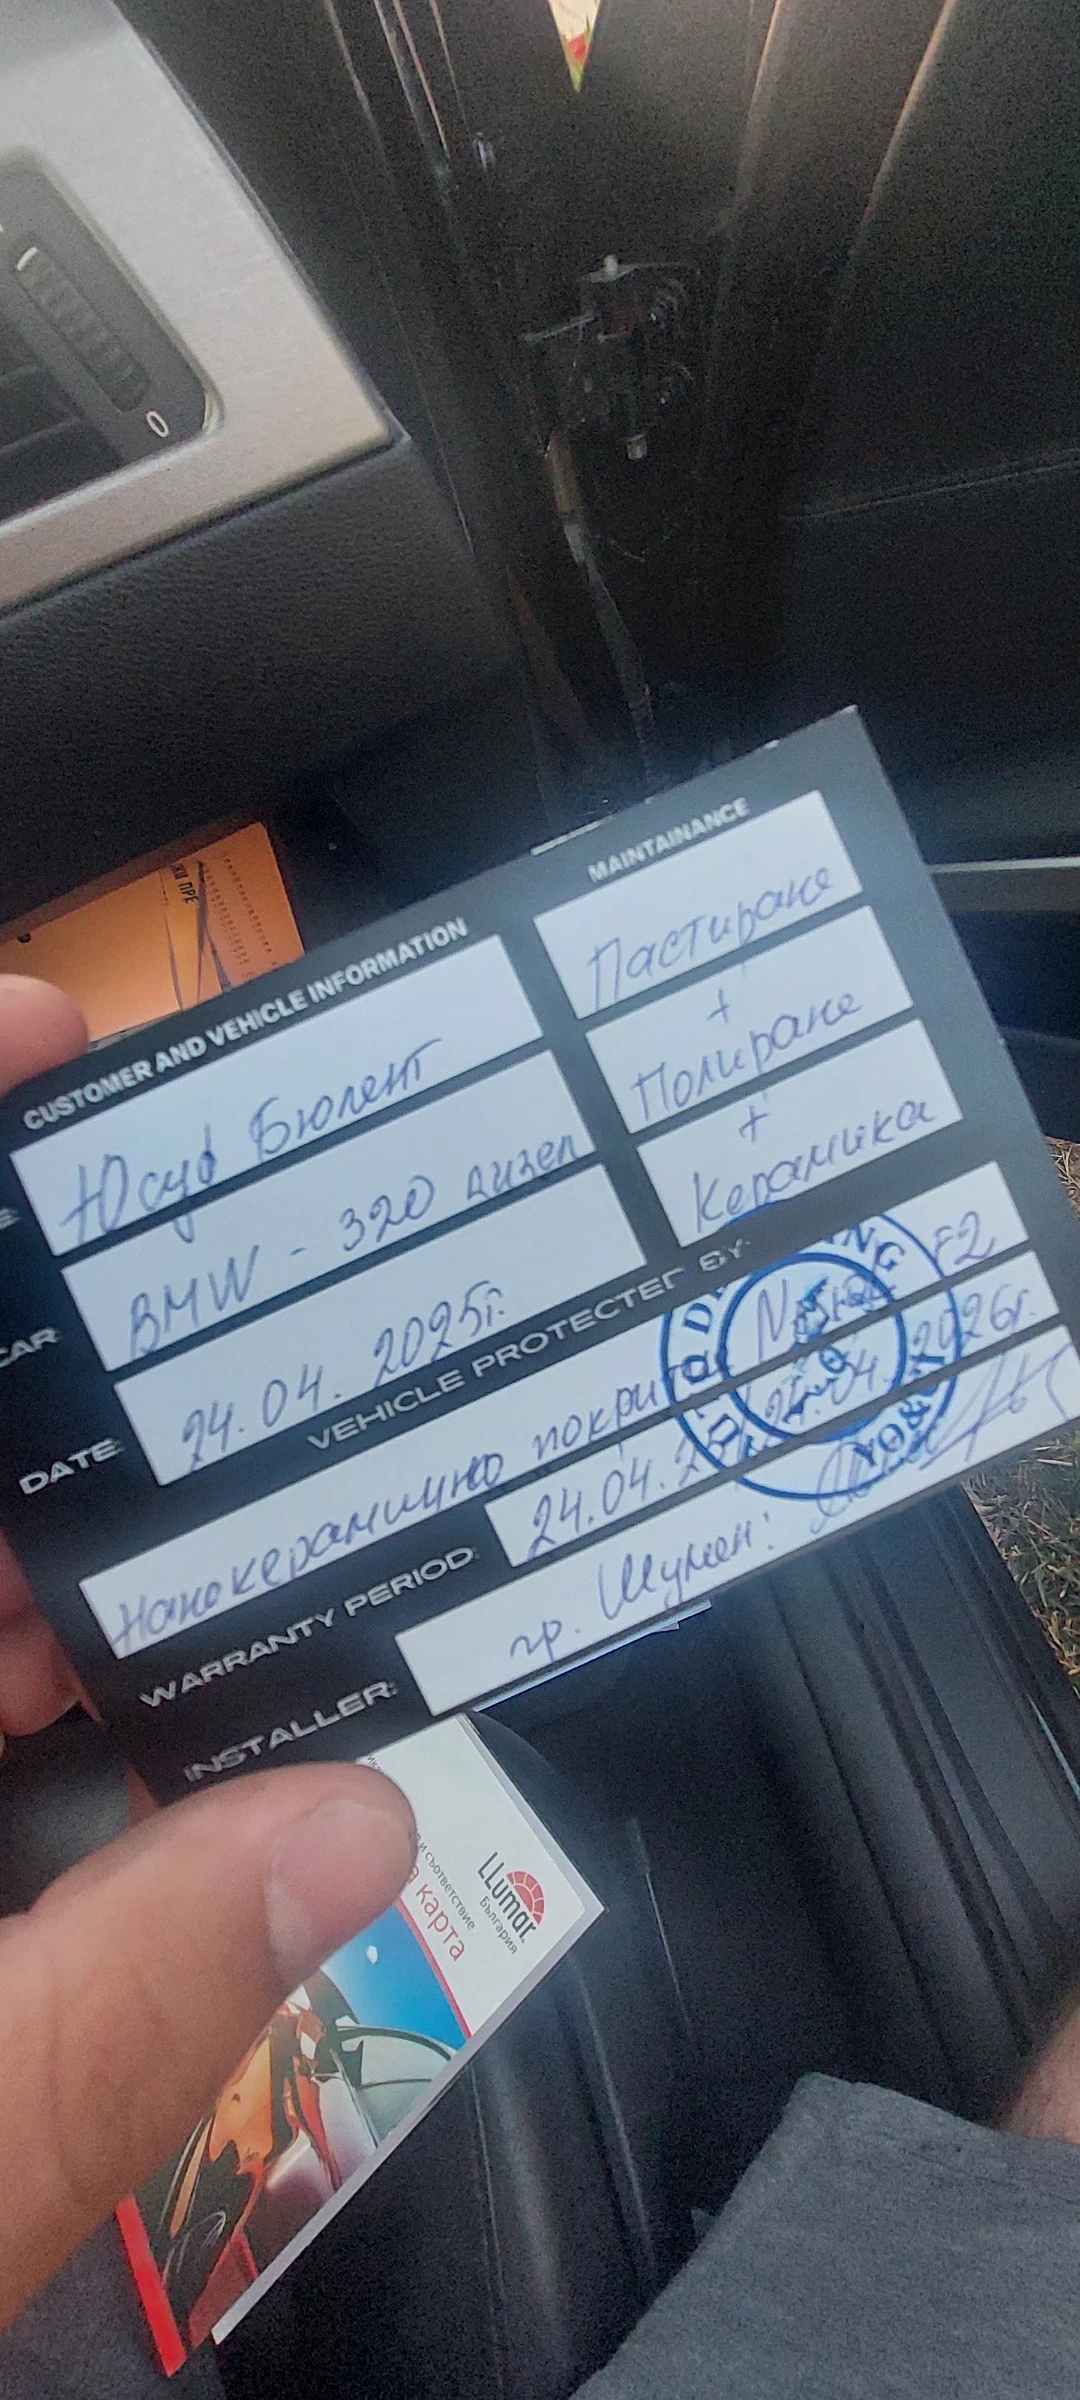 0
КИ ПРЕ
CUSTOMER AND VEHICLE INFORMATION
Юсуф Бюлент
CAR:
BMW - 320 дизел
DATE:
24.04.2025г.
MAINTAINANCE
Пастиране
+
Полиране
+
Керамика
VEHICLE PROTECTED BY:
Нанокерамично покритие
WARRANTY PERIOD:
24.04. 24.04.2026г.
INSTALLER:
гр. Шумен:
YO&U
и съответствие
карта
LLumar
България